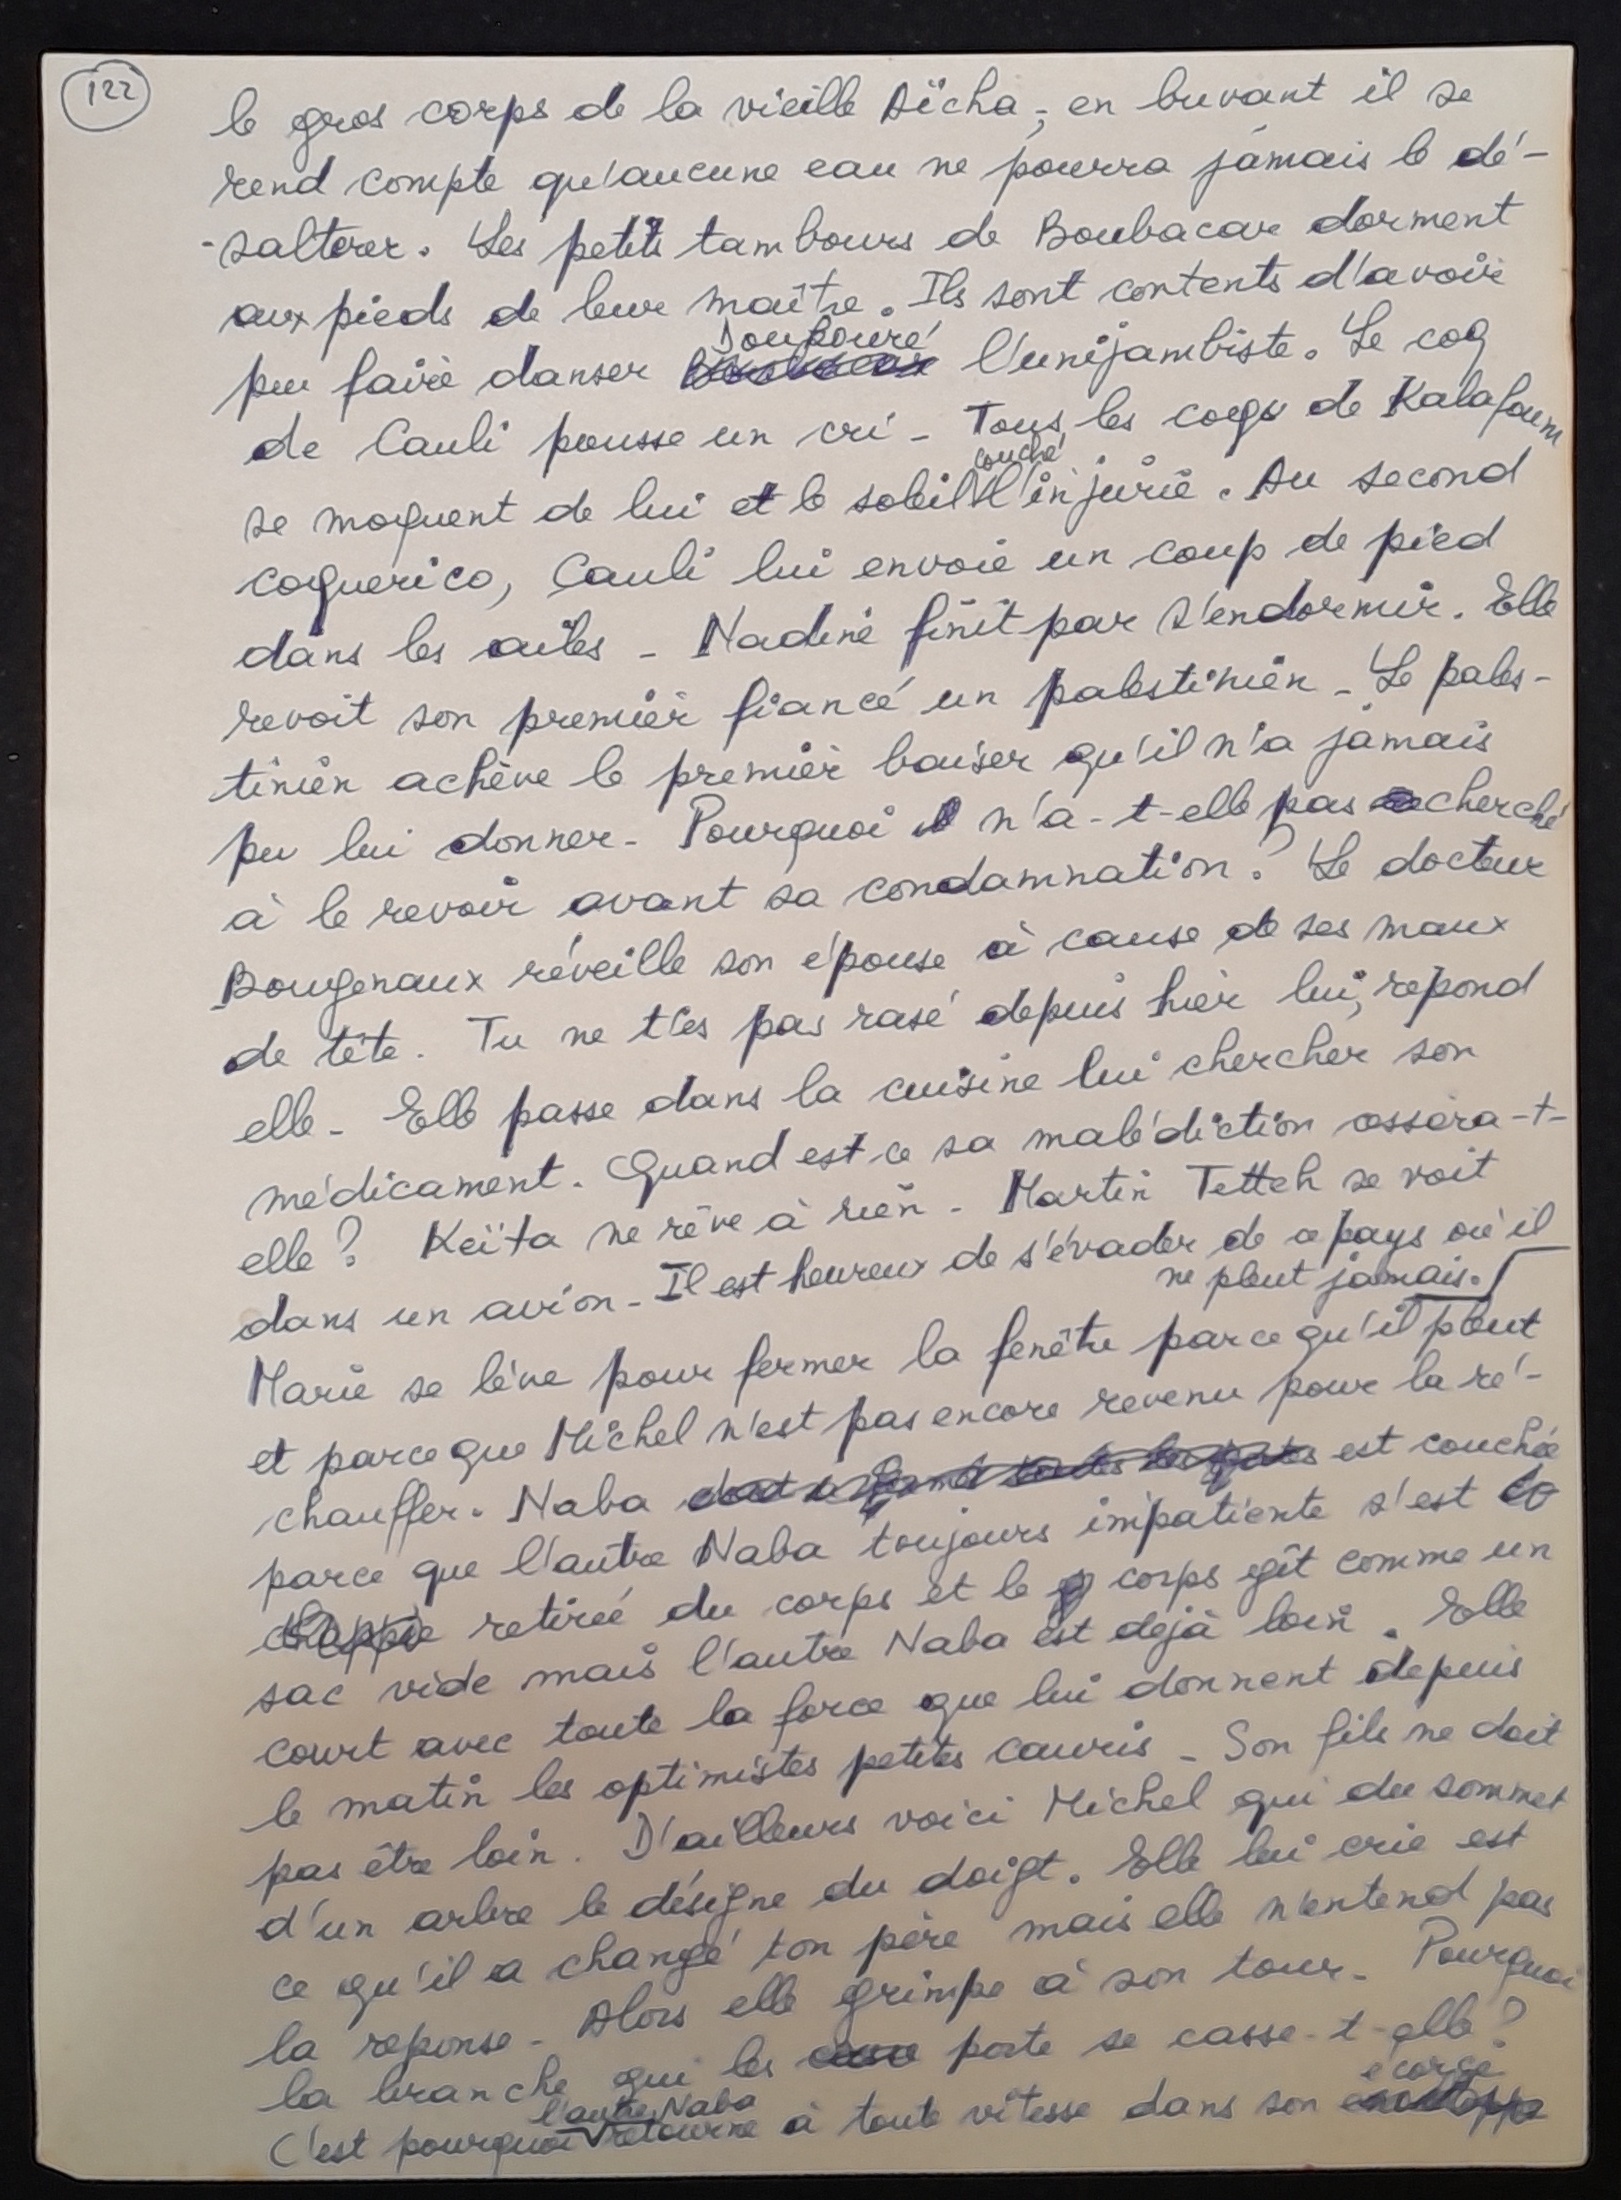 122
le gros corps de la vieille Aïcha ; en buvant il se
rend compte qu'aucune eau ne pourra jamais le dé-
-salterer. Les petits tambours de Boubacar dorment
aux pieds de leur maître. Ils sont contents d'avoir
pu faire danser Doubouré l'unijambiste. Le coq
de Cauli pousse un cri - Tous les coqs de Kalafoum
se moquent de lui et le soleil couché l'injurie. Au second
coquerico, Cauli lui envoie un coup de pied
dans les ailes - Nadine finit par s'endormir. Elle
revoit son premier fiancé un palestinien - Le pales-
tinien achève le premier baiser qu'il n'a jamais
pu lui donner - Pourquoi n'a-t-elle pas cherché
à le revoir avant sa condamnation ? Le docteur
Bougenaux réveille son épouse à cause de ses maux
de tête. Tu ne t'es pas rasé depuis hier lui, repond
elle - Elle passe dans la cuisine lui chercher son
médicament. Quand est-ce sa malédiction cessera-t-
elle ? Keïta ne rêve à rien - Martin Tetteh se voit
dans un avion - Il est heureux de s'évader de ce pays où il
ne pleut jamais.
Marie se lève pour fermer la fenêtre parce qu'il pleut
et parce que Michel n'est pas encore revenu pour la ré-
chauffer. Naba est couchée
parce que l'autre Naba toujours impatiente s'est
retirée du corps et le corps gît comme un
sac vide mais l'autre Naba est dejà loin. Elle
court avec toute la force que lui donnent depuis
le matin les optimistes petites cauris - Son fils ne doit
pas être loin. D'ailleurs voici Michel qui du sommet
d'un arbre le désigne du doigt. Elle lui crie est
ce qu'il a changé ton père mais elle n'entend pas
la reponse - Alors elle grimpe à son tour - Pourquoi
la branche qui les porte se casse-t-elle ?
C'est pourquoi l'autre Naba retourne à toute vitesse dans son écorce